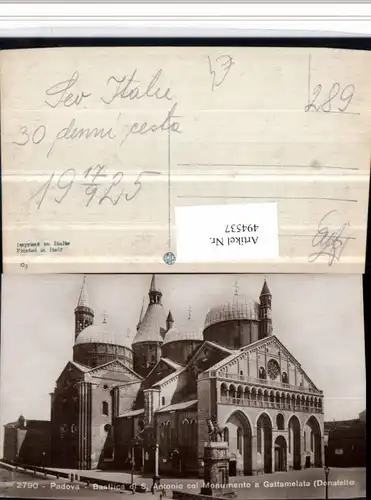 Sev. Italie
30 denní cesta
19 17/9 25
289
Imprimé en Italie
Printed in Italy
Artikel Nr.
494537
2790 - Padova - Basilica di S. Antonio col Monumento a Gattamelata (Donatello